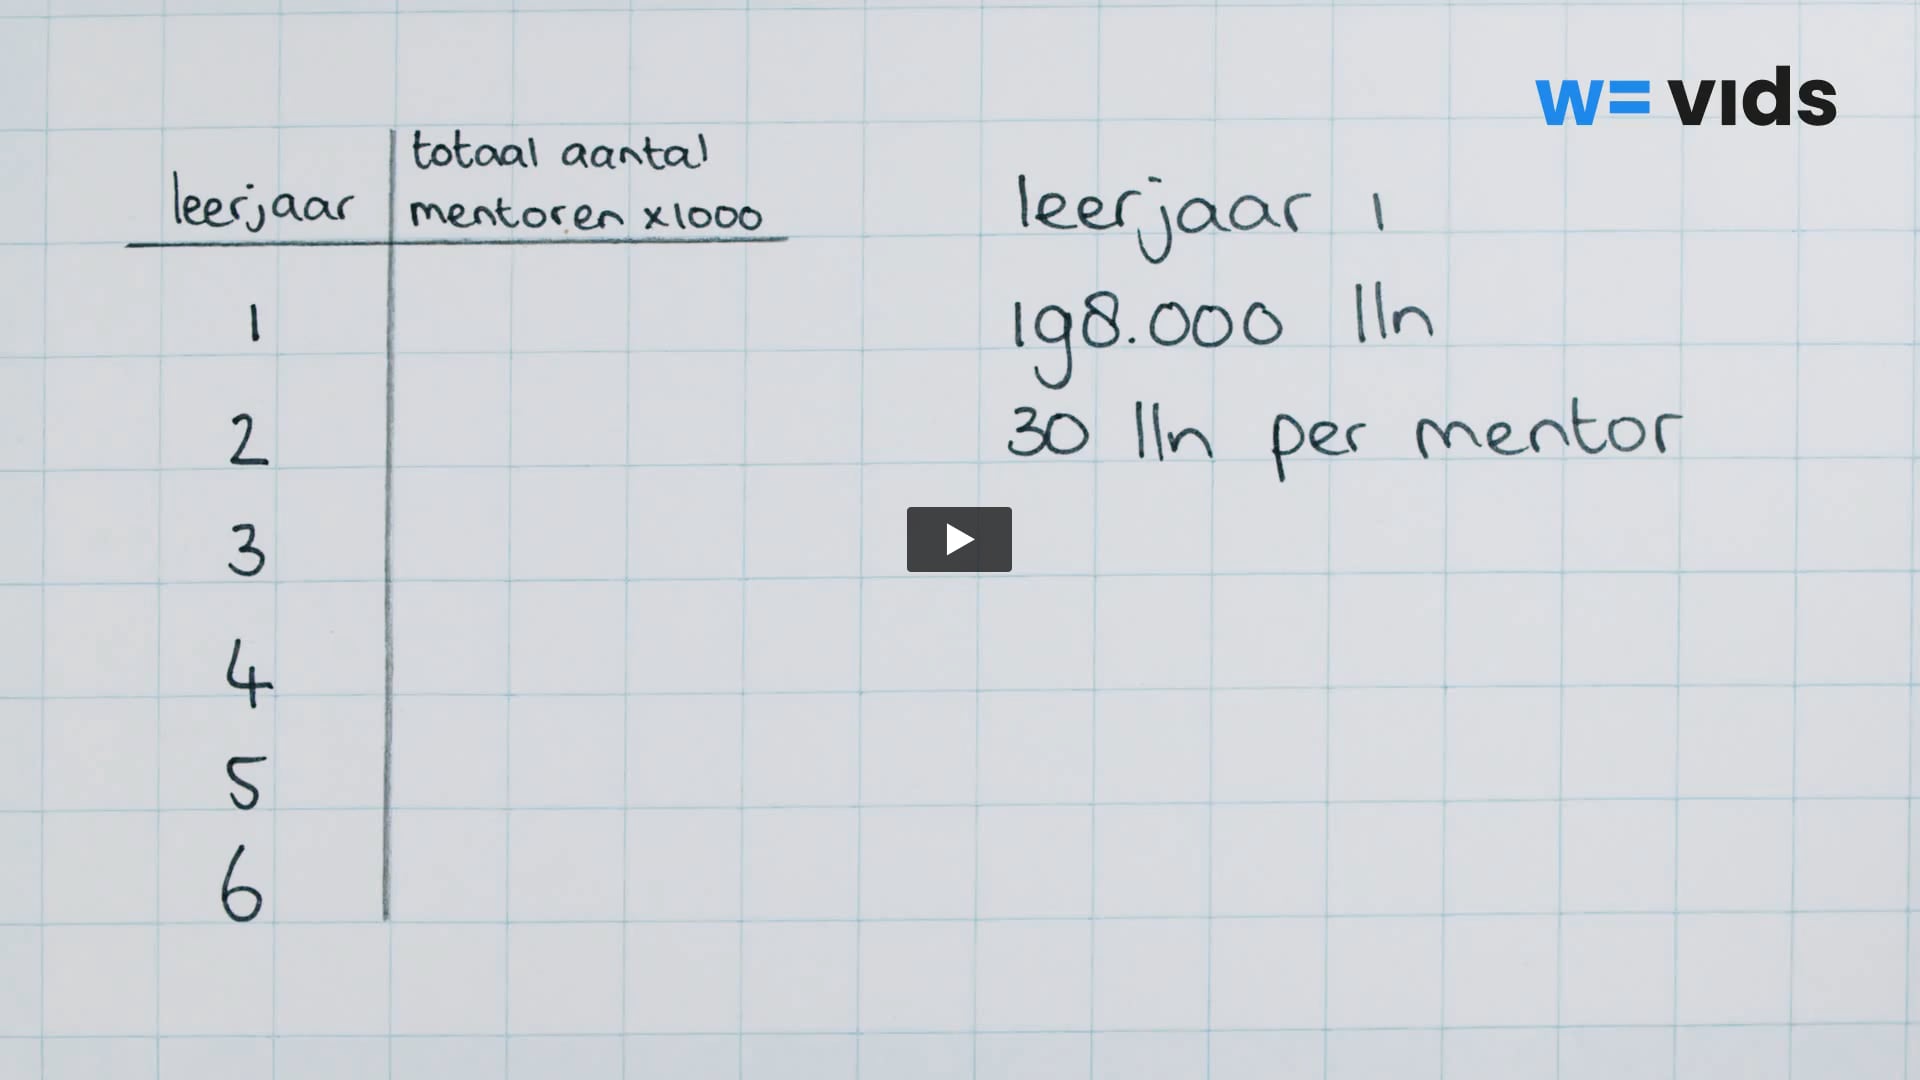 w= vids
leerjaar
totaal aantal
mentoren x1000
1
2
3
4
5
6
leerjaar 1
198.000 lln
30 lln per mentor